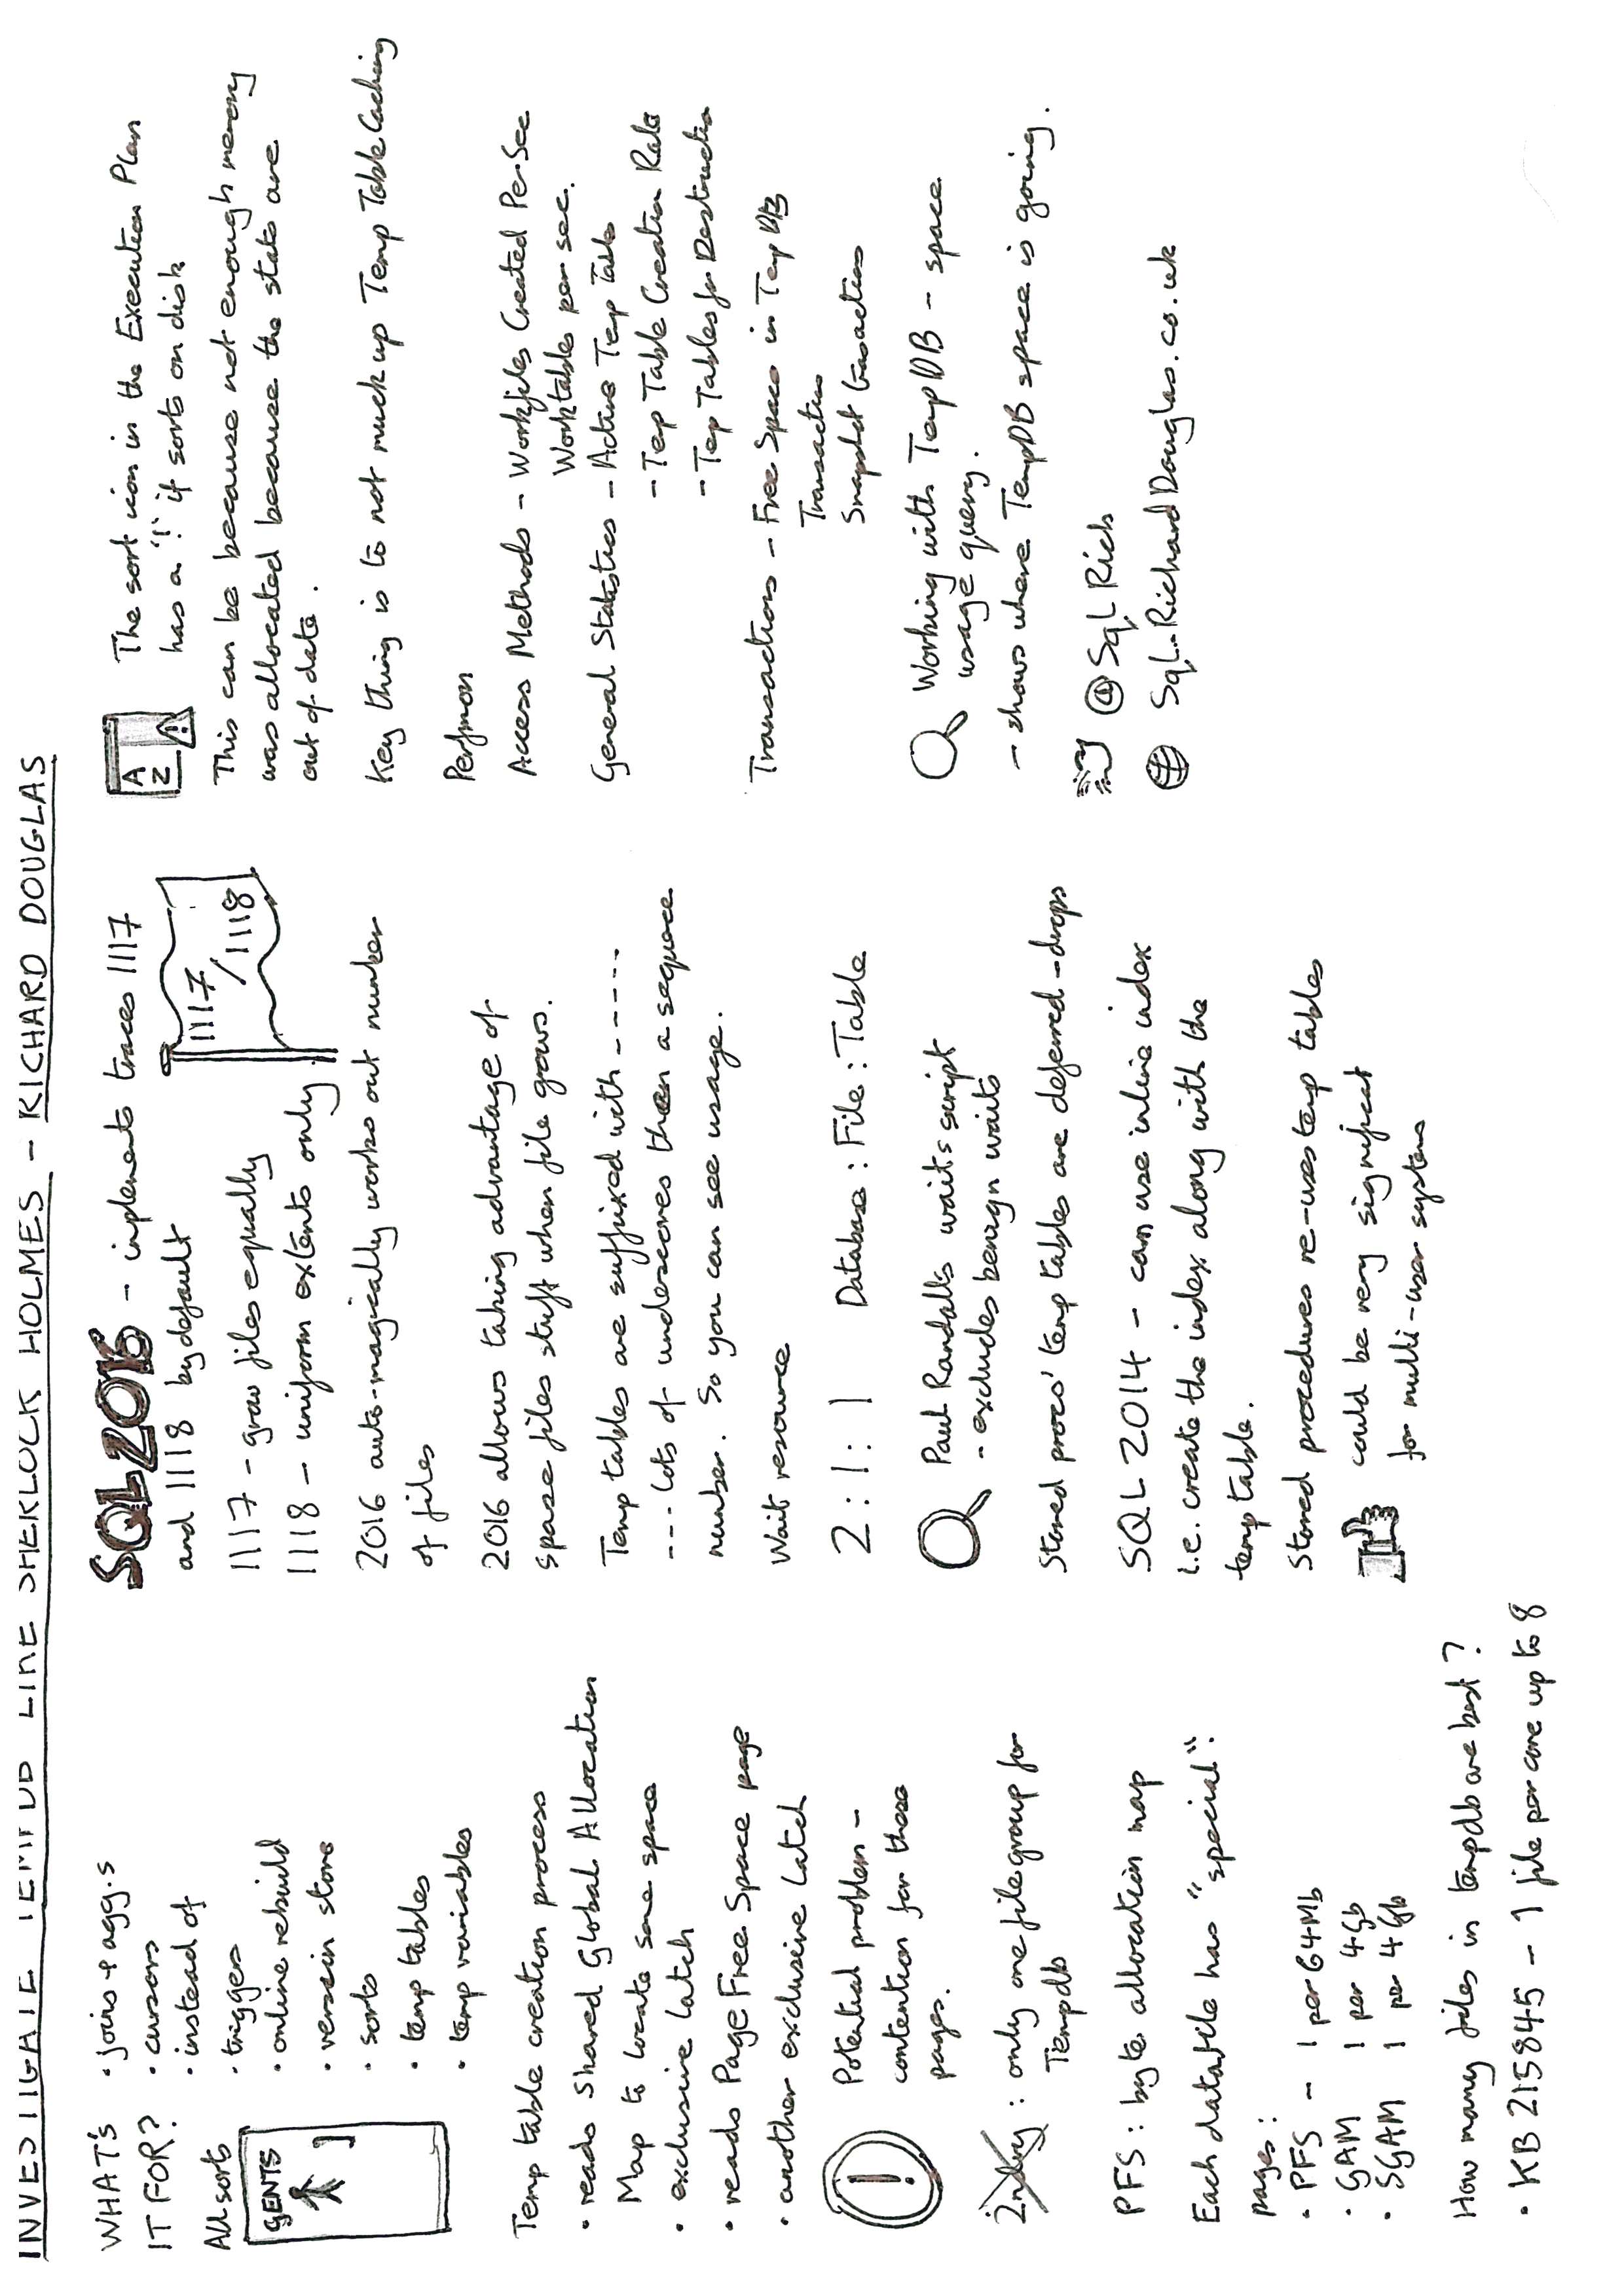 INVESTIGATE TEMPDB LIKE SHERLOCK HOLMES - RICHARD DOUGLAS
WHAT'S
IT FOR?
All sorts
GENTS
• joins + agg.s
• cursors
• instead of
• triggers
• online rebuild
• version store
• sorts
• temp tables
• temp variables
Temp table creation process
• reads Shared Global Allocation
Map to locate some space
• exclusive latch
• reads Page Free Space page
• another exclusive latch
!
Potential problem -
contention for these
pages.
2ndry : only one filegroup for
Tempdb
PFS : byte allocation map
Each datafile has "special":
pages :
• PFS - 1 per 64Mb
• GAM 1 per 4Gb
• SGAM 1 per 4Gb
How many files in tempdb are best ?
• KB 215845 - 1 file per core up to 8
SQL2016 - implements traces 1117
and 1118 by default
1117
/1118
1117 - grow files equally
1118 - uniform extents only
2016 auto-magically works out number
of files
2016 allows taking advantage of
sparse files stuff when file grows.
Temp tables are suffixed with -----
--- lots of underscores then a sequence
number. So you can see usage.
Wait resource
2 : 1 : 1 Database : File : Table
Paul Randall's waits script
- excludes benign waits
Stored procs' temp tables are deferred-drops
SQL 2014 - can use inline index
i.e. create the index along with the
temp table.
Stored procedures re-uses temp tables
could be very significant
for multi-user systems
A
Z
!
The sort icon in the Execution Plan
has a '!' if sorts on disk
This can be because not enough memory
was allocated because the stats are
out of date .
Key thing is to not muck up Temp Table Caching
Perfmon
Access Methods - Workfiles Created Per Sec
Worktables per sec.
General Statistics - Active Temp Table
- Temp Table Creation Rate
- Temp Tables for Destruction
Transactions - Free Space in Temp DB
Transaction
Snapshot transactions
Working with TempDB - space
usage query.
- shows where TempDB space is going.
@SqlRich
Sql-RichardDouglas.co.uk